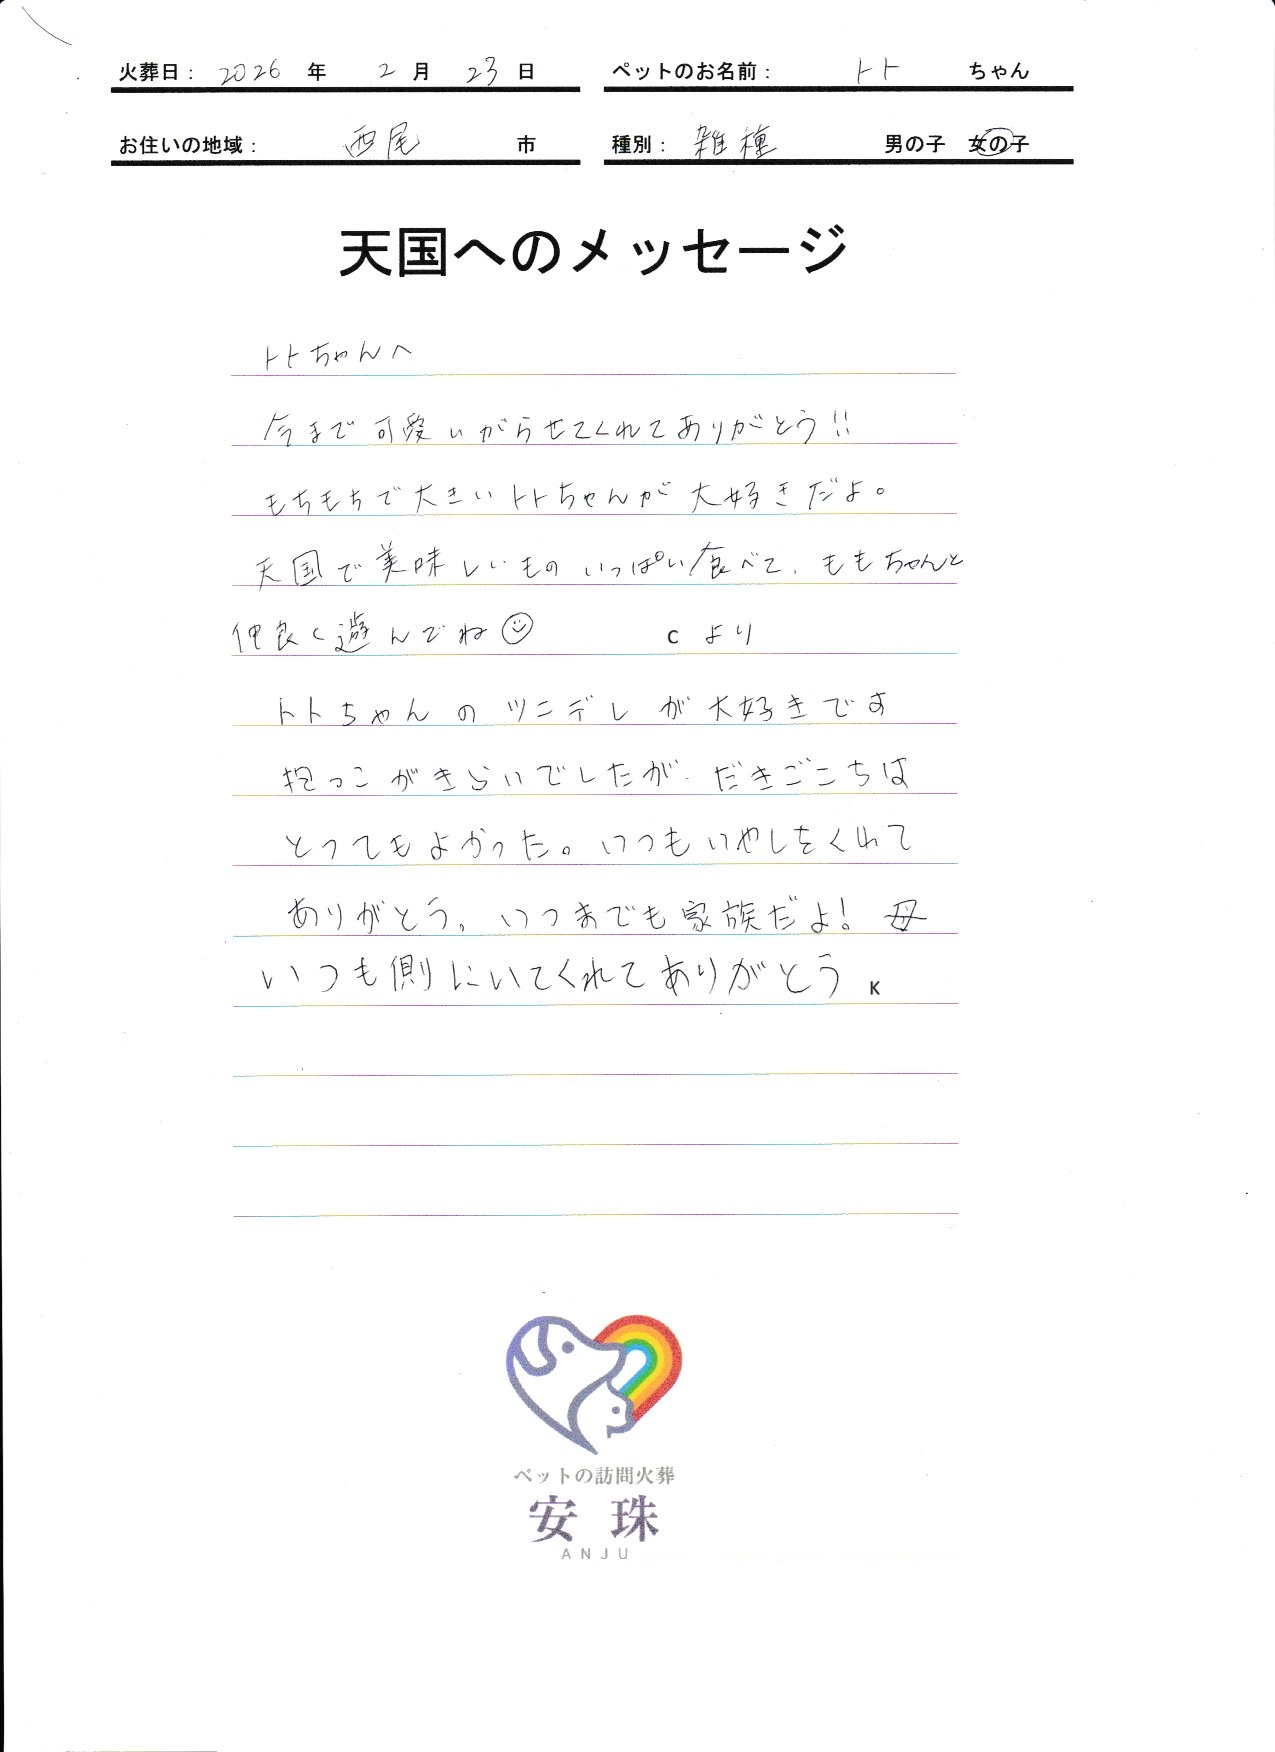 火葬日： 2026 年 2 月 23 日 ペットのお名前： トト ちゃん
お住いの地域： 西尾 市 種別： 雑種 男の子 女の子
天国へのメッセージ
トトちゃんへ
今まで可愛いがらせてくれてありがとう!!
もちもちで大きいトトちゃんが大好きだよ。
天国で美味しいものいっぱい食べて、ももちゃんと
仲良く遊んでね☺ C より
トトちゃんのツンデレが大好きです
抱っこがきらいでしたが、だきごこちは
とってもよかった。いつもいやしをくれて
ありがとう。いつまでも家族だよ! 母
いつも側にいてくれてありがとう K
ペットの訪問火葬
安珠
ANJU